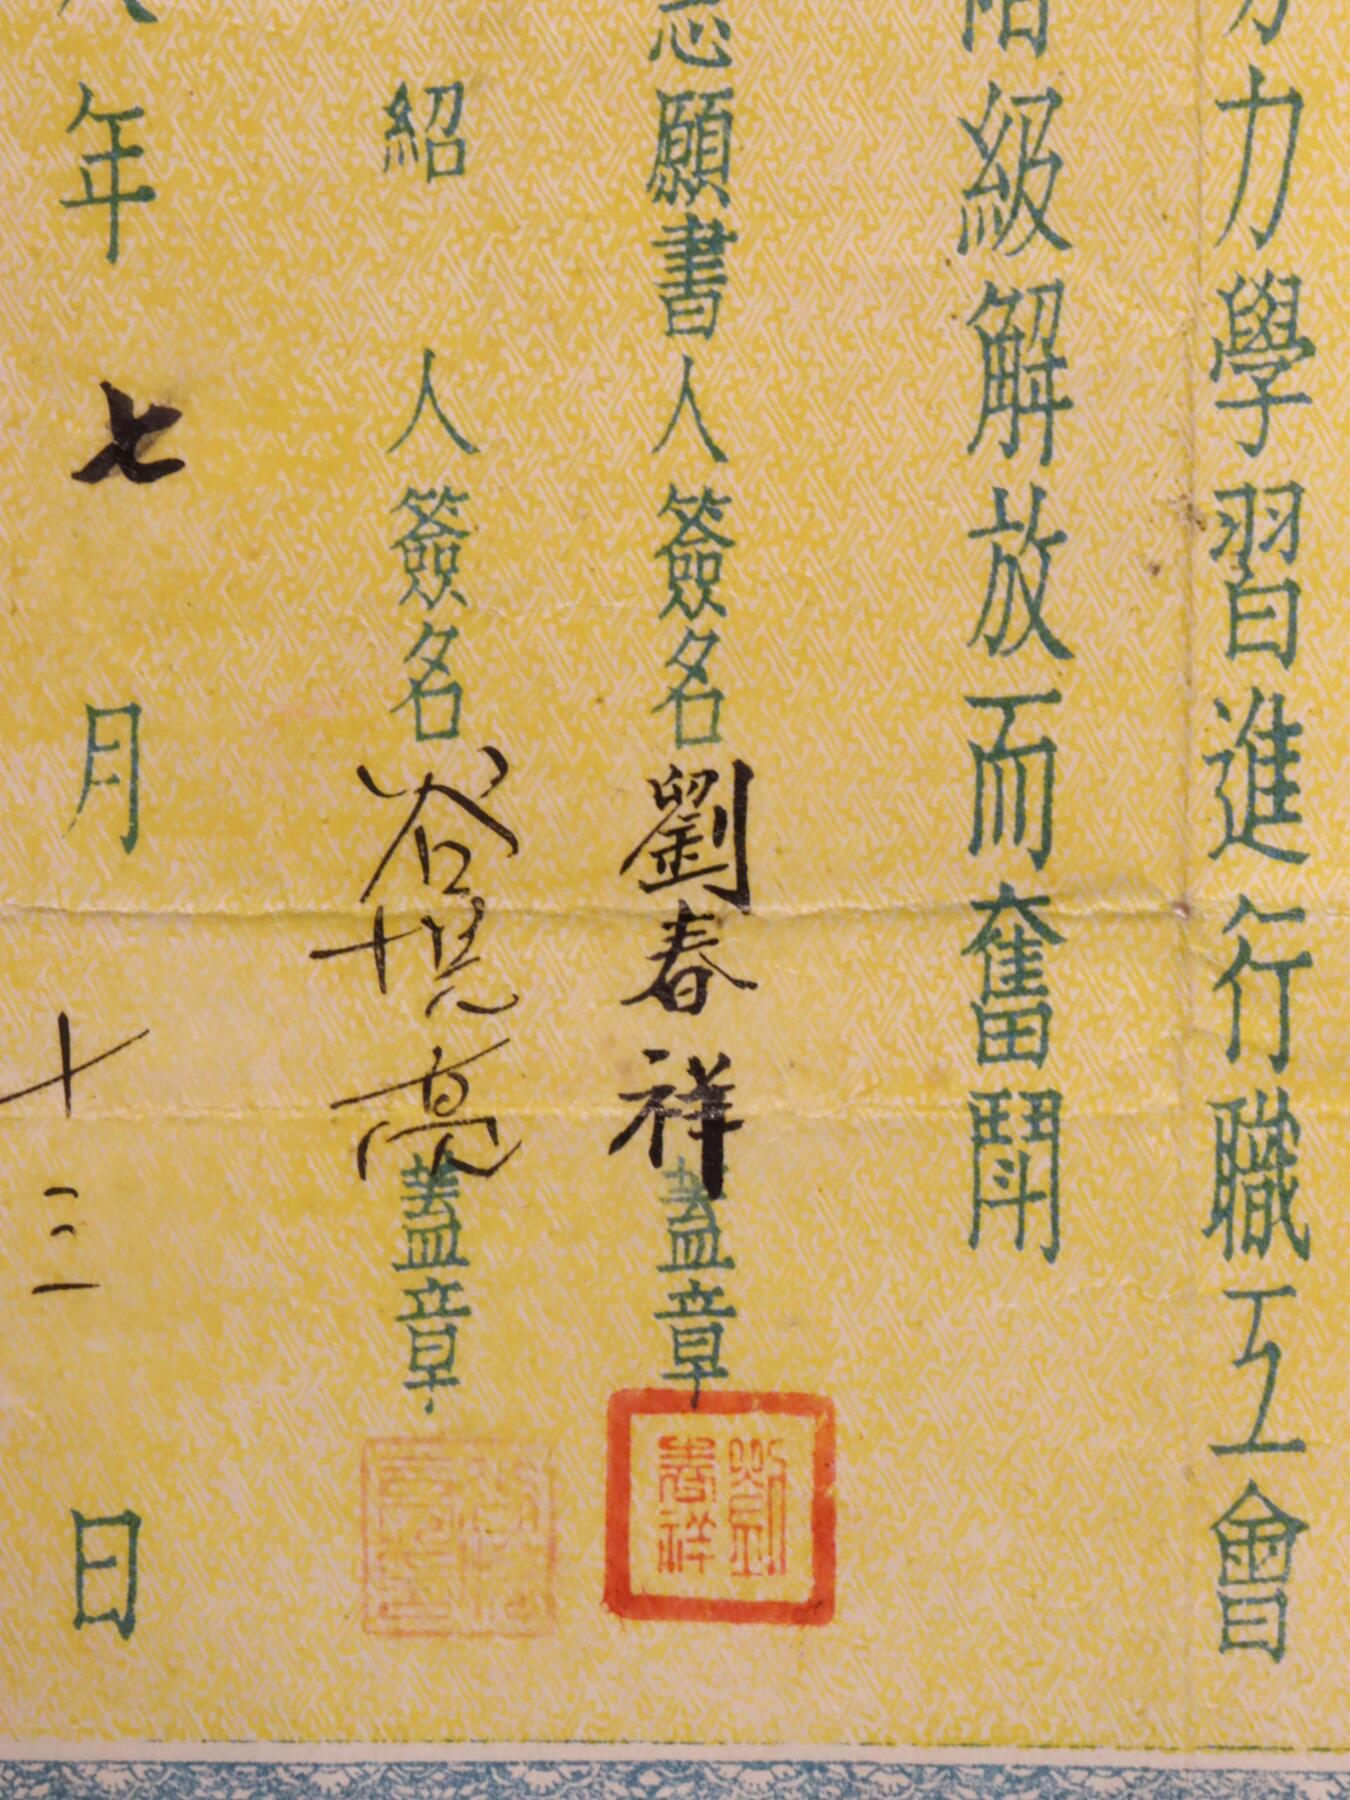 力學習進行職工會
階級解放而奮鬪
志願書人簽名劉春祥蓋章
劉春祥
紹人簽名谷堒亮蓋章
年七月十三日